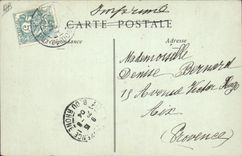 Imprimé
CARTE POSTALE
Correspondance
Adresse
Mademoiselle
Denise Bernard
13 Avenue Victor Hugo
Aix
(Provence)